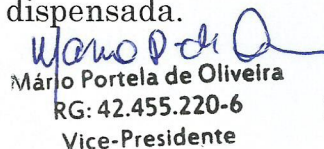 dispensada.
Mário Portela de Oliveira
RG: 42.455.220-6
Vice-Presidente